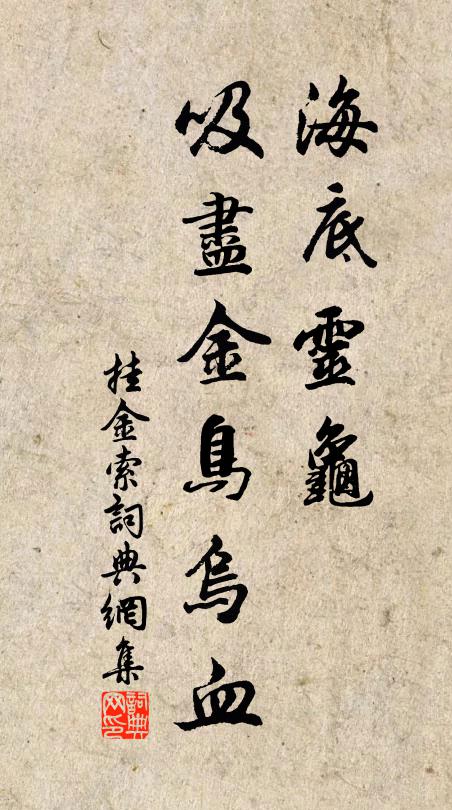 海底靈龜
吸盡金鳥烏血
挂金索詞典網集
詞典網印